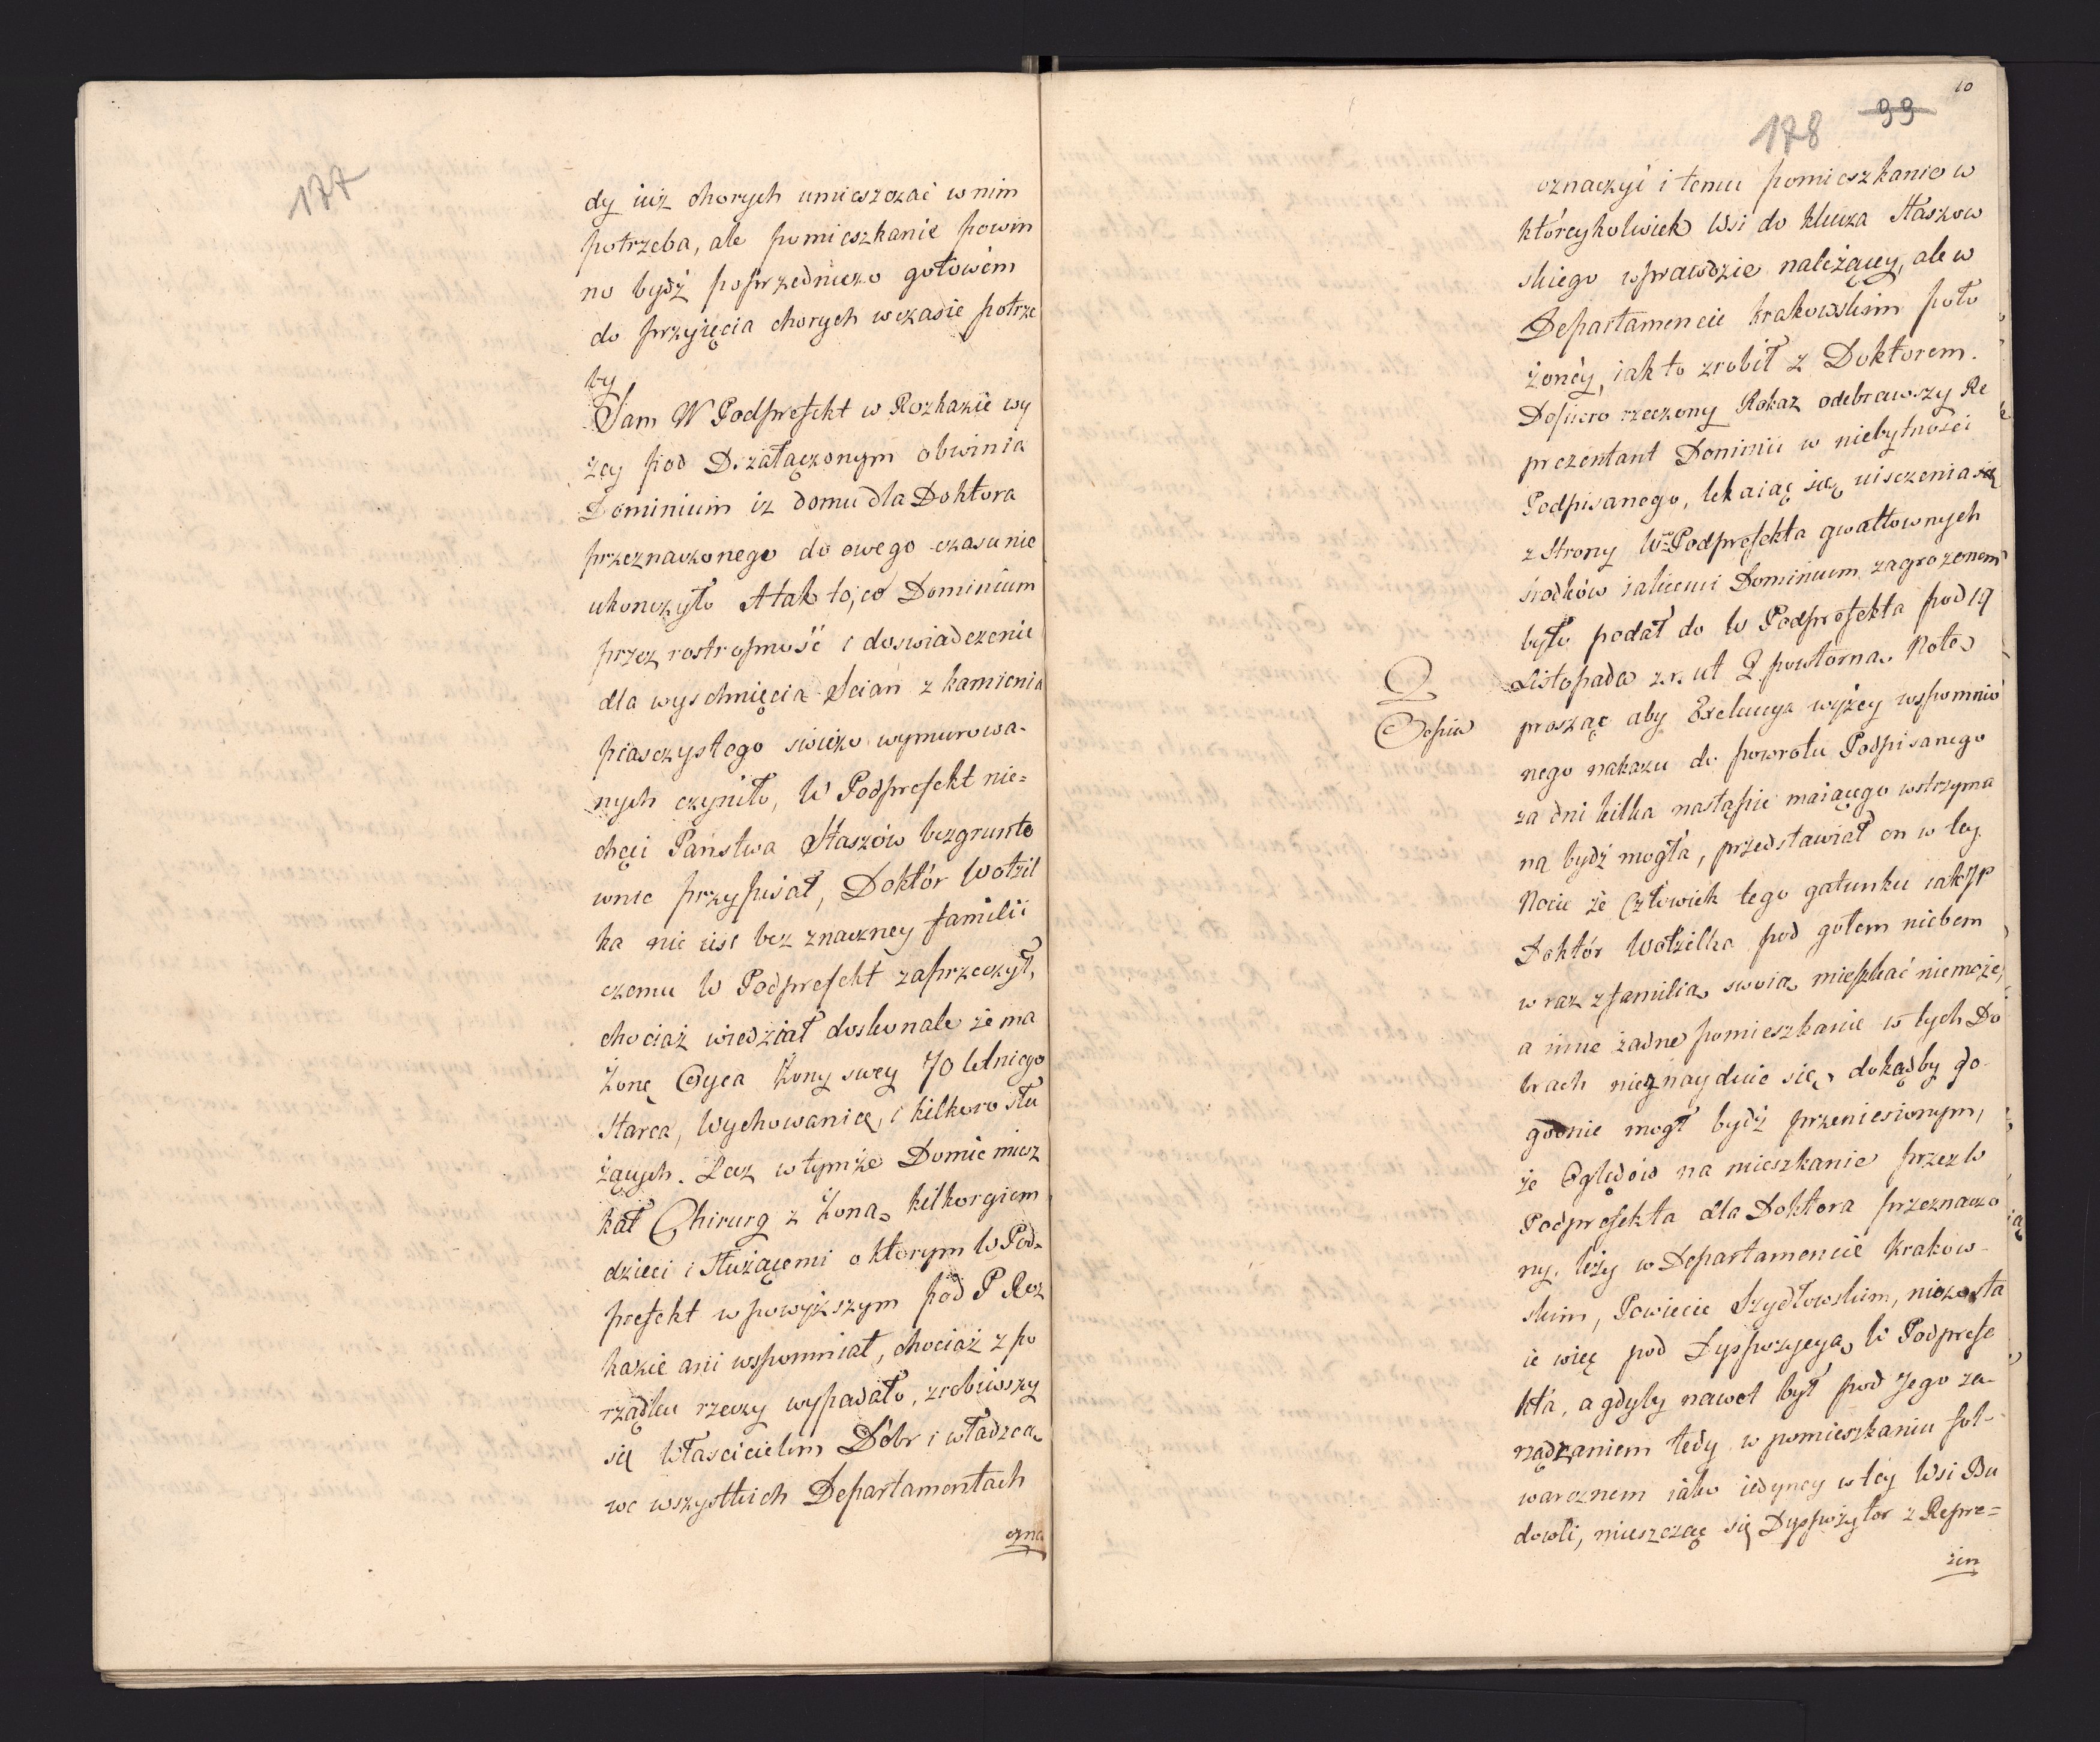 177
dy iuż chorych umieszczać w nim
potrzeba, ale pomieszkanie powin
no bydź poprzedniczo gotowém
do przyięcia chorych w czasie potrze
by
Sam W Podprefekt w Rozkazie wy
zey pod D. załączonym obwinia
Dominium iż domu dla Doktora
przeznaczonego do owego czasu nie
ukonczyło A tak to, co Dominium
przez rostropność i doswiadczenie
dla wyschnięcia Scian z kamienia
piasczystego swieżo wymurowa-
nych czyniło, W Podprefekt nie=
chęci Państwa Staszów bezgrunto
wnie przypisał, Doktór Wotzil
ka nie iest bez znaczney familii
czemu W Podprefekt zaprzeczył,
chociaż wiedział doskonale że ma
Żonę Oyca Żony swey 70 letniego
Starca, Wychowanicę, i kilkoro słu
żących. Lecz w tymże Domie miesz
kał Chirurg z Żoną, kilkorgiem
dzieci i służącemi o ktorym W Pod=
prefekt w powyższym pod P Roz
kazie ani wspomniał, chociaż z po
rządku rzeczy wypadało, zrobiwszy
się Właścicielem Dóbr i władzcą
we wszystkich Departamentach
ozna
10
178 99
oznaczyć i temu pomieszkanie w
któreykolwiek Wsi do klucza Staszow
skiego wprawdzie należącey, ale w
Departamencie Krakowskim poło
żoney, iak to zrobił z Doktorem.
Dopiero rzeczony Rokaz odebrawszy Re
prezentant Dominii w niebytności
Podpisanego, lękaiąc się uisczenia się
z Strony W Podprefekta gwałtownych
srodków iakiemi Dominium zagrożonem
było podał do W Podprefekta pod 19
Listopada z.r. ut Q powtorną Notę
Q
Opiw
prosząc aby Exekucya wyżey wspomnio
nego nakazu do powrotu Podpisanego
za dni kilka nastąpić maiącego wstrzyma
ną bydź mogła, przedstawiał on w tey
Nocie że Człowiek tego gatunku iak JP
Doktór Wotzilka pod gołem niebem
wraz z familią swoią mieszkać niemoże,
a inne żadne pomieszkanie w tych Do
brach nieznayduie się, dokądby do-
godnie mogł bydź przeniesionym,
że Oględów na mieszkanie przez W
Podprefekta dla Doktora przeznaczo
ny, leży w Departamencie Krakow-
skim, Powiecie Szydłowskim, niezosta
ie więc pod Dyspozycyą W Podprefe
kta, a gdyby nawet był pod Jego za-
rządzaniem tedy w pomieszkaniu fol-
warcznem iako iedyney w tey Wsi Bu
dowli, mieszcząc się Dyspozytor z Repre=
zen